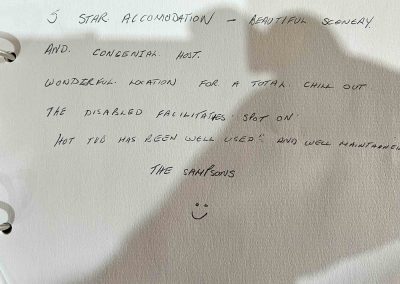 5 STAR ACCOMODATION – BEAUTIFUL SCENERY.
AND. CONGENIAL HOST.
WONDERFUL LOCATION FOR A TOTAL CHILL OUT
THE DISABLED FACILITATES 'SPOT ON'
HOT TUB HAS BEEN WELL USED!! AND WELL MAINTAINED
THE SAMPSONS